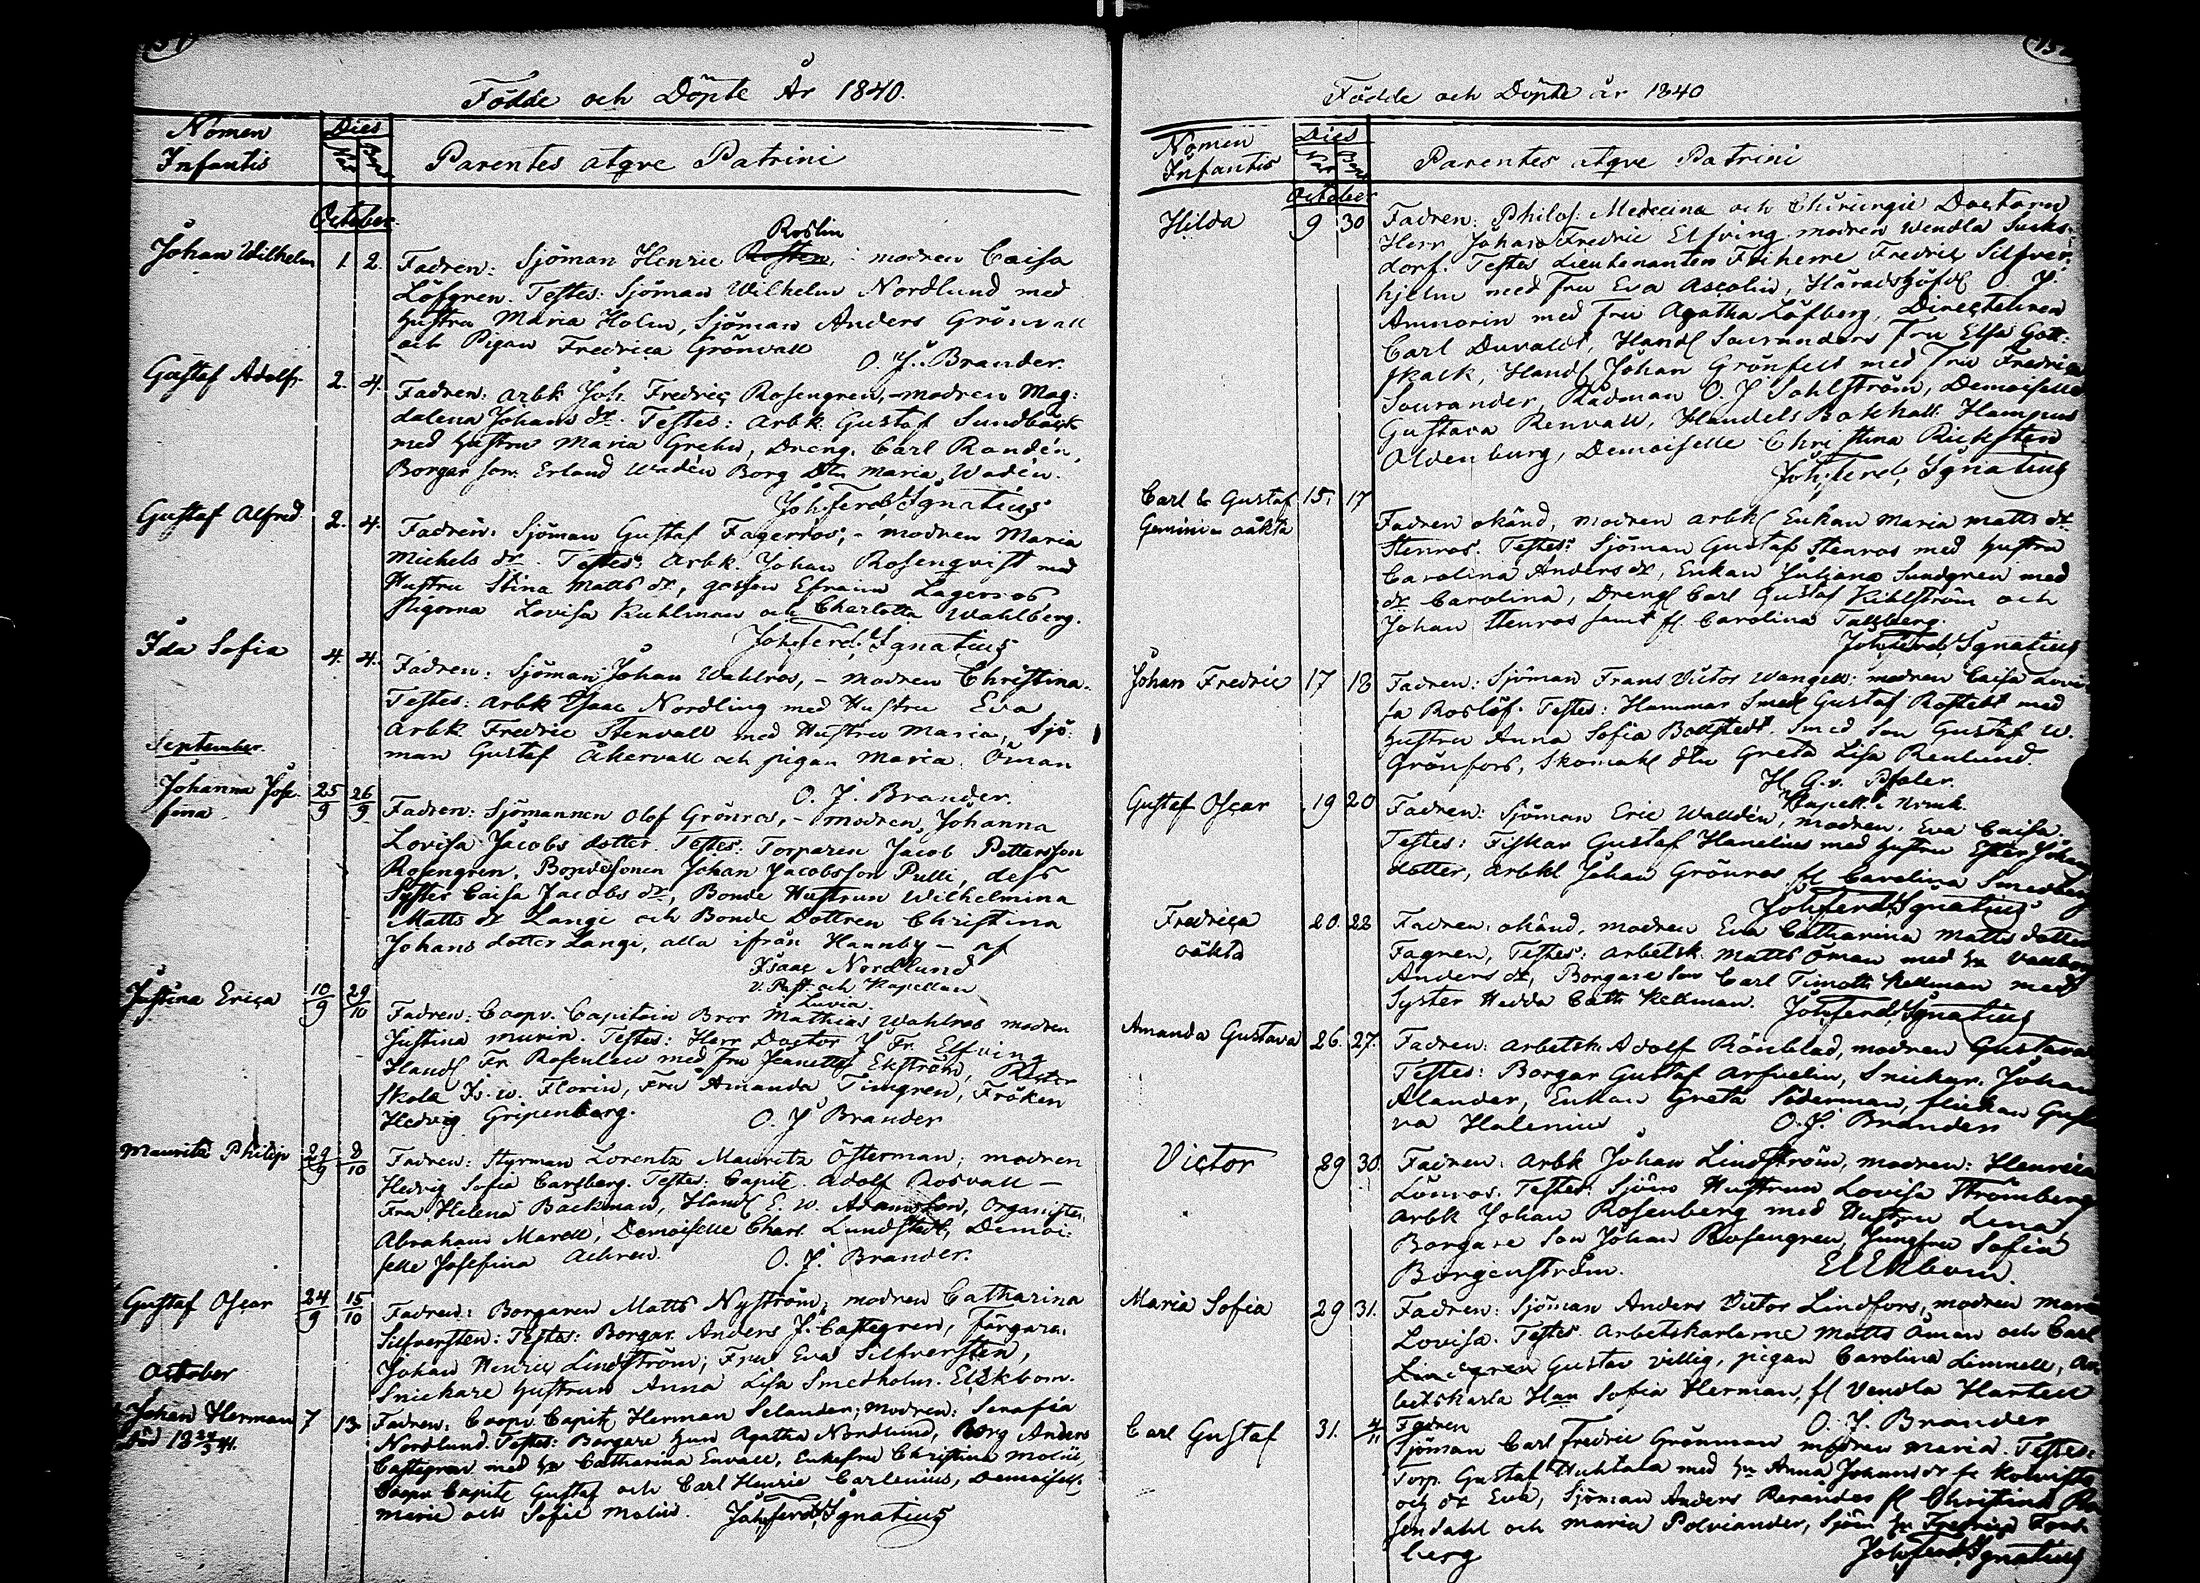 Födde och Döpte År 1840.
Nomen
Infantis
Dies
Parentes atqve Patrini
October
Johan Wilhelm 1. 2. Fadren: Sjöman Henric Roslin modren Caisa
Löfgren. Testes: Sjöman Wilhelm Nordlund med
hustru Maria Holm, Sjöman Anders Grönvall
och Pigan Fredrica Grönvall
O. J. Brander.
Gustaf Adolf 2. 4. Fadren: arbk Joh. Fredric Rosengren, - modren Mag:
dalena Johans dr. Testes: Arbk. Gustaf Sundbäck
med hustru Maria Grehn, Dreng. Carl Randén,
Borgar son Erland Wadén Borg Dtr Maria Wadén.
Joh. Ferd. Ignatius
Gustaf Alfred 2. 4. Fadren: Sjöman Gustaf Fagerros; - modren Maria
Michels dr. Testes: Arbk. Johan Rosenqvist med
Hustru Stina Matts dr, gossen Efraim Lagerros
Pigorna Lovisa Kuhlman och Charlotta Wahlberg.
Joh. Ferd. Ignatius
Ida Sofia 4. 4. Fadren: Sjöman Johan Wahlros, - modren Christina.
Testes: Arbk Isaac Nordling med Hustru Eva
Arbk Fredric Stenvall med Hustru Maria, Sjö:
man Gustaf Åkervall och pigan Maria Öman
O. J. Brander.
September
Johanna Jose-
fina 25/9 26/9 Fadren: Sjömannen Olof Grönros, - modren, Johanna
Lovisa Jacobs dotter. Testes: Torparen Jacob Pettersson
Rosengren, Bondesonen Johan Jacobsson Pulli, dess
Syster Caisa Jacobs dr, Bonde Hustrun Wilhelmina
Matts dr Lange och Bonde Dottren Christina
Johans dotter Langi, alla ifrån Hannby - af
Isaac Nordlund
v. Past. och Kapellan
i Luvia.
Justina Erica 10/9 29/10 Fadren: Coopv. Capitain Bror Mathias Wahlros modren
Justina Murin. Testes: Herr Doctor J Fr. Elfving
Handl Fr. Rosenlew med Fru Jeanette Ekström,
Skola Fr. W. Florin, Fru Amanda Timgren, Fröken
Hedvig Gripenberg. O. J Brander
Mauritz Philip 29/9 8/10 Fadren: Styrman Lorentz Mauritz Österman; modren
Hedvig Sofia Carlberg. Testes: Capite. Adolf Rosvall -
Fru Helena Bäckman, Handl E. W. Adamsson, Organisten
Abraham Marell, Demoiselle Charl. Lundstedt, Demoi:
selle Josefina Achren. O. J. Brander.
Gustaf Oscar 24/9 15/10 Fadren: Borgaren Matts Nyström; modren Catharina
Silfversten: Testes: Borgar. Anders J. Castegren, Färgaren
Johan Henric Lindström; Fru Eva Silfversten,
Snickare hustrun Anna Lisa Smedholm. El Ekbom.
October
Johan Herman 7 13. Fadren: Coopv. Capite Herman Selander; modren: Serafia
död 18 24/5 41. Nordlund. Testes: Borgare Agatha Nordlund, Borg Anders
Castegren med hu Catharina Envall, Enkefru Christina
Coopv. Capite Gustaf och Carl Henric Carlenius, Demoiselle
Marie och Sofie Joh. Ferd. Ignatius
Födde och Döpte år 1840
Nomen
Infantis
Dies
Parentes atqve Patrini
October
Hilda 9 30 Fadren: Philos: Medicinæ och Chirurgie Doctorn
Herr Johan Fredric Elfving modren Wendla Sucks-
dorf. Testes Lieutenanten Friherre Fredric Silfver:
hjelm med Fru Eva Ascolin, Häradshöfd O. J.
Ammorin med Fru Agatha Löfberg, Directeuren
Carl Duvaldt, Handl Souranders Fru Elsa Gott:
skalk, Handl Johan Grönfelt med Fru Fredrica
Sourander, Rådman O. J Sahlström, Demoiselle
Gustava Renvall, Handels Bokhall. Hampus
Oldenburg, Demoiselle Christina Ricksten
Joh. Ferd. Ignatius
Carl & Gustaf 15. 17
Gemini oäkta Fadren okänd, modren arbk Enkan Maria Matts dr
Stenros. Testes: Sjöman Gustaf Stenros med hustru
Carolina Anders dr, Enkan Juliana Sundgren med
dr Carolina, Drengl Carl Gustaf Kihlström och
Johan Stenros samt fl Carolina Tallberg.
Joh. Ferd. Ignatius
Johan Fredric 17 18 Fadren: Sjöman Frans Victor Wangell: modren Caisa Lovi-
sa Roslöf. Testes: Hammar Smed Gustaf Rostedt med
hustru Anna Sofia Bollstedt. Smed Son Gustaf W.
Grönfors, Skomak dtr Greta Lisa Renlund.
H. G. v. Pfaler.
Kapell. i Nrmk.
Gustaf Oscar 19 20 Fadren: Sjöman Eric Walldén, modren. Eva Caisa.
Testes: Fiskar Gustaf Hanelius med hustru Ester Johans
dotter, arbkl Johan Grönros fl Carolina Smedberg
Joh. Ferd. Ignatius
Fredrica
oäkta 20. 22 Fadren: okänd, modren Eva Catharina Matts dotter
Fagren, Testes: Arbetsk. Matts Öman med hu
Anders dr, Borgare son Carl Timoth Kellman med
Syster Hedda Cath Kellman. Joh. Ferd. Ignatius
Amanda Gustava 26. 27. Fadren: Arbetsk. Adolf Rönblad, modren Gustava
Testes: Borgar Gustaf Arfvelin, Snickar. Johan
Alander, Enkan Greta Söderman, flickan Gusta
va Halenius O. J. Brander
Victor 29 30. Fadren: Arbk Johan Lindström, modren: Henrica
Lönros. Testes: Sjöm Hustrun Lovisa Strömberg
Arbk Johan Rosenberg med Hustru Lena,
Borgare Son Johan Rosengren, Jungfru Sofia
Borgenström. El Ekbom.
Maria Sofia 29 31. Fadren: Sjöman Anders Victor Lindfors, modren Maria
Lovisa. Testes. Arbetskarlarne Matts Öman och Carl
Lindgren Gustav Villig, pigan Carolina Limnell, Ar
betskarls Han Sofia Herman, fl Vendla Hartell
O. J. Brander
Carl Gustaf 31. 4/11 Fadren
Sjöman Carl Fredric Grönman modren Maria. Testes:
Torp. Gustaf Huhtala med hu Anna Johans dr fr Kolvista
och dr Eva, Sjöman Anders Renander fl Christina Ro
sendahl och Maria Polviander, Sjöm hu Fredrica Fors
berg Joh. Ferd. Ignatius